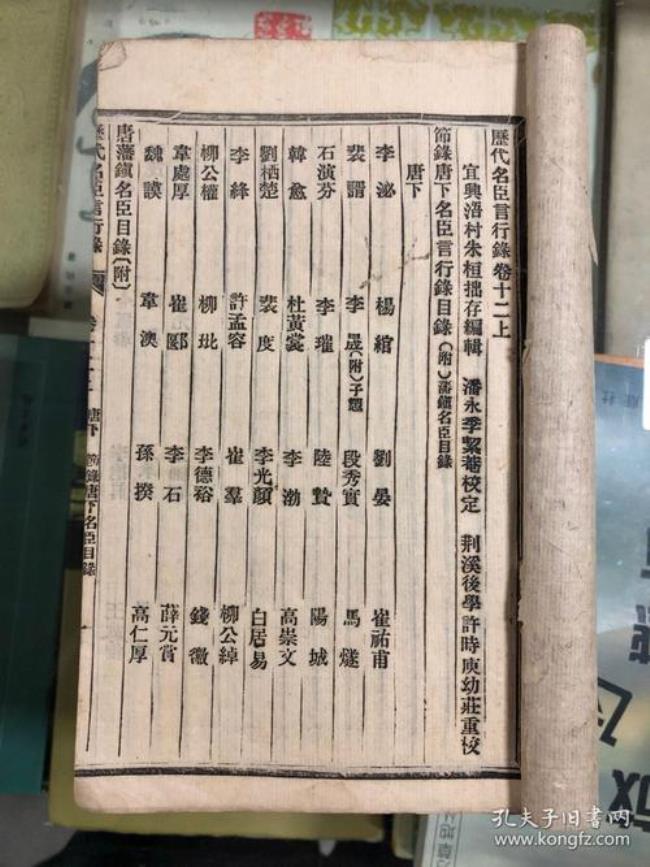 歷代名臣言行錄卷十二上
宜興浯村朱桓拙存編輯 潘永季絜菴校定 荆溪後學許時庚幼莊重校
節錄唐下名臣言行錄目錄(附)藩鎮名臣目錄
唐下
李泌 楊綰 劉晏 崔祐甫
裴諝 李晟(附)子愬 段秀實 馬燧
石演芬 李瓘 陸贄 陽城
韓愈 杜黃裳 李渤 高崇文
劉栖楚 裴度 李光顏 白居易
李絳 許孟容 崔羣 柳公綽
柳公權 柳玭 李德裕 錢徽
韋處厚 崔郾 李石 薛元賞
魏謨 韋澳 孫揆 高仁厚
唐藩鎮名臣目錄(附)
歷代名臣言行錄 唐下 節錄唐下名臣目錄
孔夫子旧书网